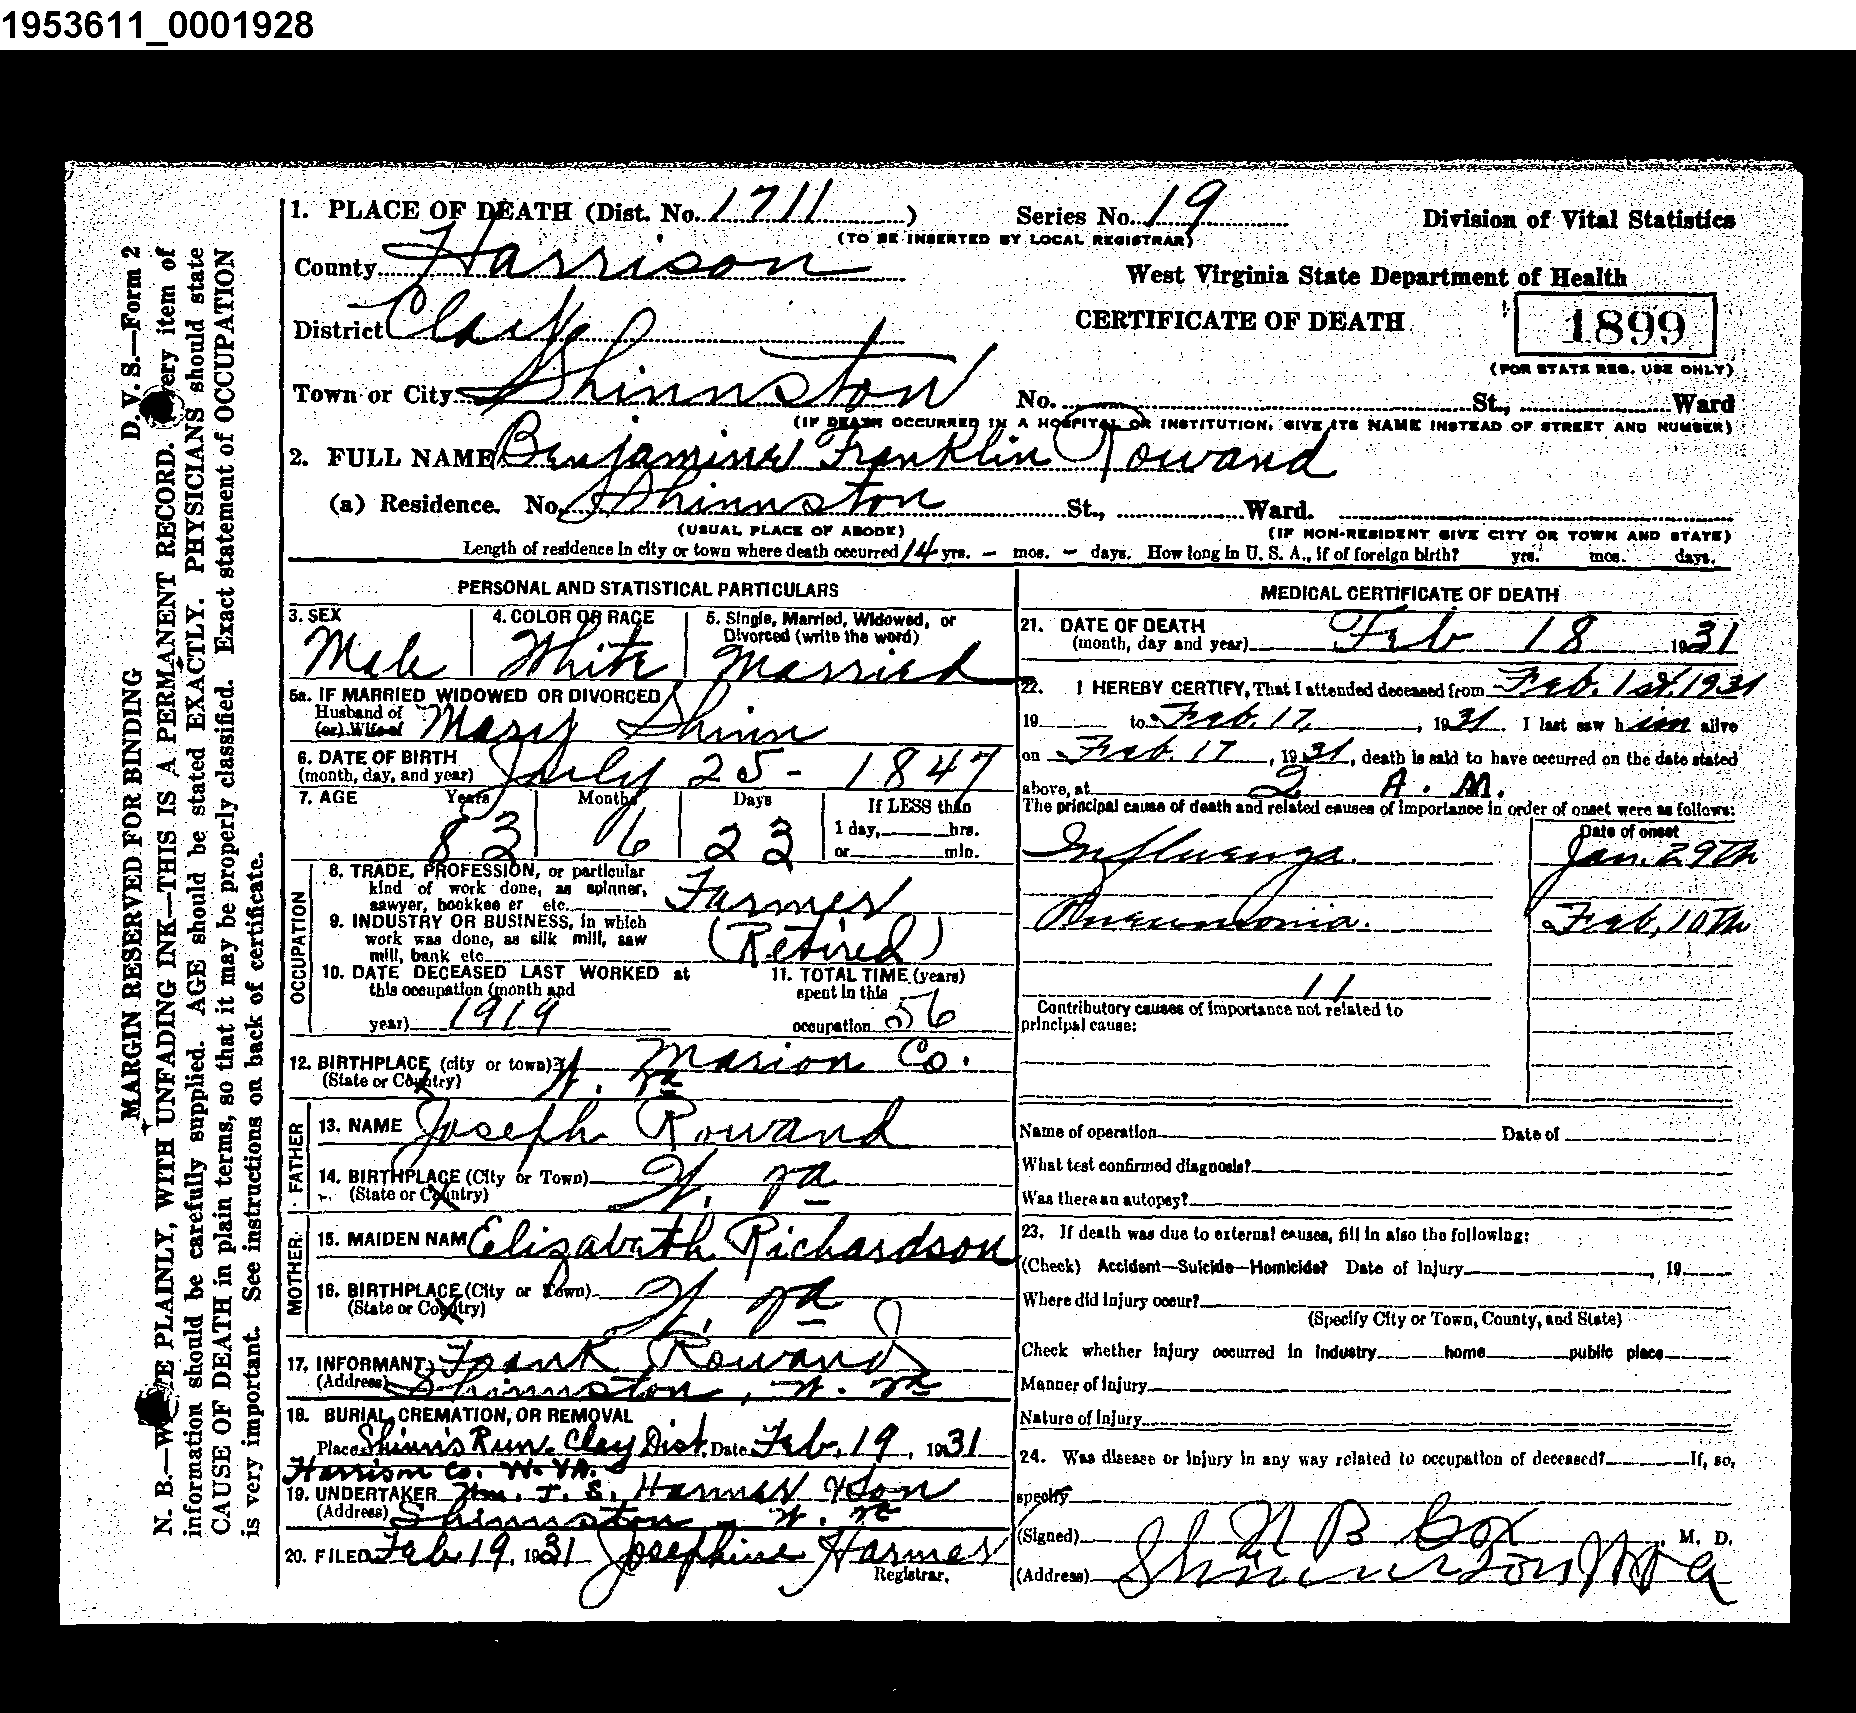 1953611_0001928
1. PLACE OF DEATH (Dist. No. 1711 )
Series No. 19
(TO BE INSERTED BY LOCAL REGISTRAR)
Division of Vital Statistics
County Harrison
West Virginia State Department of Health
District
CERTIFICATE OF DEATH
1899
(FOR STATE REG. USE ONLY)
Town or City Shinnston
No. St., Ward
(IF DEATH OCCURRED IN A HOSPITAL OR INSTITUTION, GIVE ITS NAME INSTEAD OF STREET AND NUMBER)
2. FULL NAME Benjamine Franklin Rowand
(a) Residence. No. Shinnston St., Ward.
(USUAL PLACE OF ABODE)
(IF NON-RESIDENT GIVE CITY OR TOWN AND STATE)
Length of residence in city or town where death occurred 14 yrs. - mos. - days. How long in U. S. A., if of foreign birth? yrs. mos. days.
PERSONAL AND STATISTICAL PARTICULARS
3. SEX
Male
4. COLOR OR RACE
White
5. Single, Married, Widowed, or
Divorced (write the word)
Married
5a. IF MARRIED WIDOWED OR DIVORCED
Husband of
(or) Wife of
Mary Shinn
6. DATE OF BIRTH
(month, day, and year) July 25 - 1847
7. AGE Years Months Days If LESS than
83 6 23
1 day, hrs.
or min.
OCCUPATION
8. TRADE, PROFESSION, or particular
kind of work done, as spinner,
sawyer, bookkee er etc. Farmer
9. INDUSTRY OR BUSINESS, in which
work was done, as silk mill, saw
mill, bank etc (Retired)
10. DATE DECEASED LAST WORKED at
this occupation (month and
year) 1919
11. TOTAL TIME (years)
spent in this
occupation 56
12. BIRTHPLACE (city or town) Marion Co.
(State or Country) W. Va
FATHER
13. NAME Joseph Rowand
14. BIRTHPLACE (City or Town)
(State or Country) W. Va
MOTHER
15. MAIDEN NAM Elizabeth Richardson
16. BIRTHPLACE (City or Town)
(State or Country) W. Va
17. INFORMANT Frank Rowand
(Address) Shinnston, W. Va
18. BURIAL, CREMATION, OR REMOVAL
Place Shinn's Run. Clay Dist. Date Feb. 19, 1931
Harrison Co. W. VA.
19. UNDERTAKER J. S. Harmer & Son
(Address) Shinnston W. Va
20. FILED Feb 19, 1931 Josephine Harmer
Registrar.
MEDICAL CERTIFICATE OF DEATH
21. DATE OF DEATH
(month, day and year) Feb 18 1931
22. I HEREBY CERTIFY, That I attended deceased from Feb. 1st. 1931
19 to Feb. 17, , 1931. I last saw him alive
on Feb. 17 , 1931, death is said to have occurred on the date stated
above, at 2 A. M.
The principal cause of death and related causes of importance in order of onset were as follows:
Date of onset
Influenza. Jan. 29th
Pneumonia. Feb. 10th
11
Contributory causes of importance not related to
principal cause:
Name of operation Date of
What test confirmed diagnosis?
Was there an autopsy?
23. If death was due to external causes, fill in also the following:
(Check) Accident—Suicide—Homicide? Date of Injury , 19
Where did injury occur?
(Specify City or Town, County, and State)
Check whether injury occurred in industry home public place
Manner of Injury
Nature of Injury
24. Was disease or injury in any way related to occupation of deceased? If, so,
specify
(Signed) Cox M. D.
(Address) Shinnston W Va
MARGIN RESERVED FOR BINDING
D. V. S.—Form 2
N. B.—W TE PLAINLY, WITH UNFADING INK—THIS IS A PERMANENT RECORD. very item of
information should be carefully supplied. AGE should be stated EXACTLY. PHYSICIANS should state
CAUSE OF DEATH in plain terms, so that it may be properly classified. Exact statement of OCCUPATION
is very important. See instructions on back of certificate.